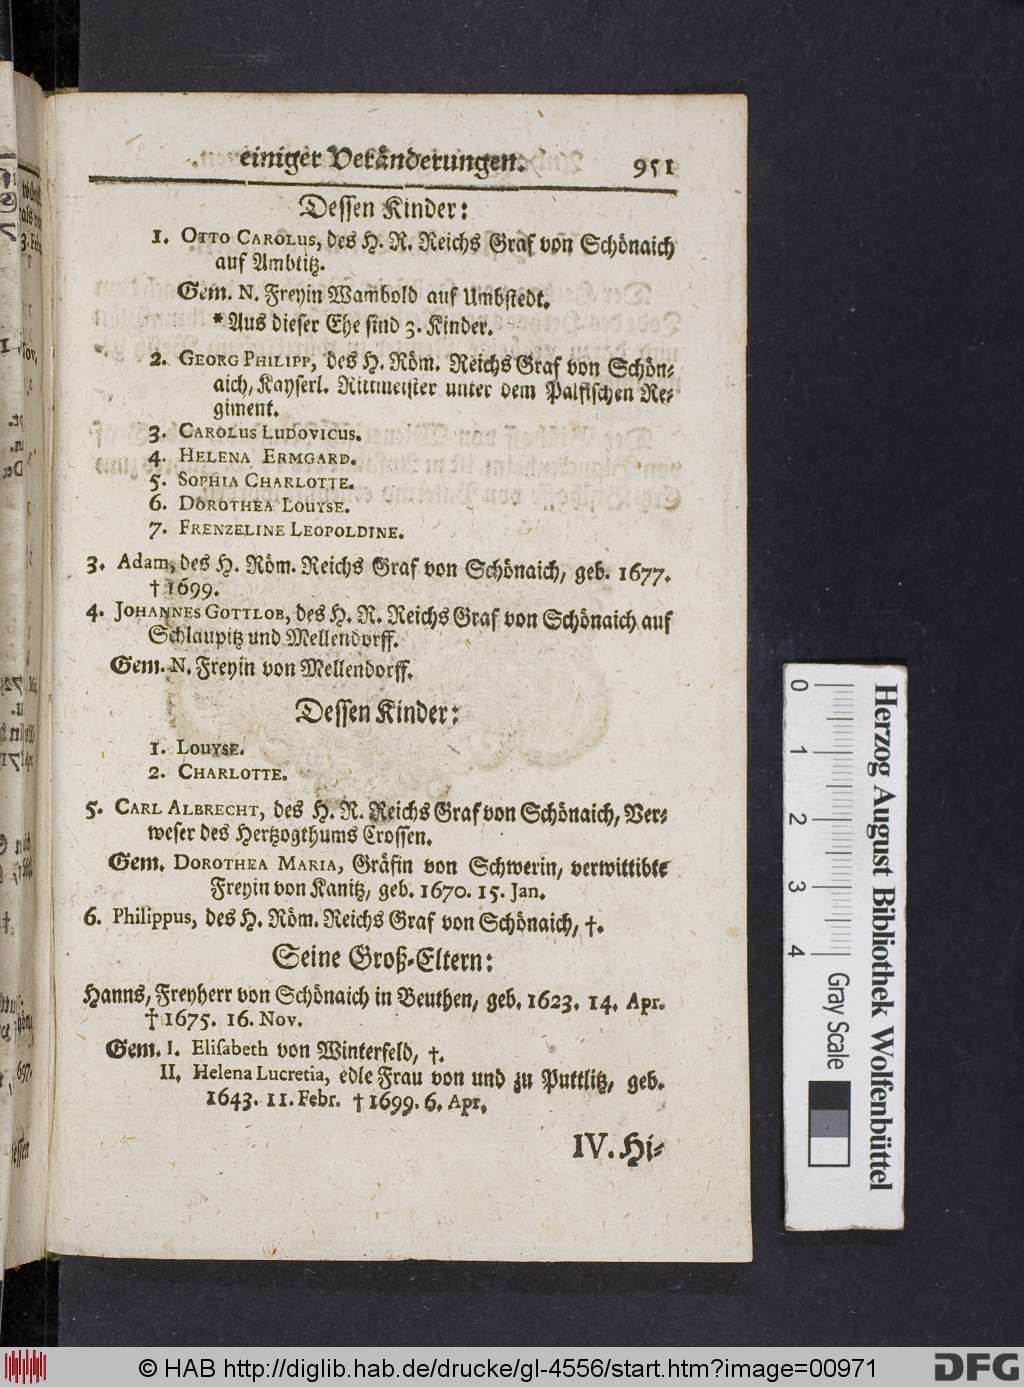 einiger Veränderungen. 951
Dessen Kinder:
1. OTTO CAROLUS, des H. R. Reichs Graf von Schönaich
auf Ambtitz.
Gem. N. Freyin Wambold auf Umbstedt.
* Aus dieser Ehe sind 3. Kinder.
2. GEORG PHILIPP, des H. Röm. Reichs Graf von Schön-
aich, Kayserl. Rittmeister unter dem Palfischen Re-
giment.
3. CAROLUS LUDOVICUS.
4. HELENA ERMGARD.
5. SOPHIA CHARLOTTE.
6. DOROTHEA LOUYSE.
7. FRENZELINE LEOPOLDINE.
3. Adam, des H. Röm. Reichs Graf von Schönaich, geb. 1677.
† 1699.
4. JOHANNES GOTTLOB, des H. R. Reichs Graf von Schönaich auf
Schlaupitz und Mellendorff.
Gem. N. Freyin von Mellendorff.
Dessen Kinder:
1. LOUYSE.
2. CHARLOTTE.
5. CARL ALBRECHT, des H. R. Reichs Graf von Schönaich, Ver-
weser des Hertzogthums Crossen.
Gem. DOROTHEA MARIA, Gräfin von Schwerin, verwittibte
Freyin von Kanitz, geb. 1670. 15. Jan.
6. Philippus, des H. Röm. Reichs Graf von Schönaich, †.
Seine Groß-Eltern:
Hanns, Freyherr von Schönaich in Beuthen, geb. 1623. 14. Apr.
† 1675. 16. Nov.
Gem. I. Elisabeth von Winterfeld, †.
II. Helena Lucretia, edle Frau von und zu Puttlitz, geb.
1643. 11. Febr. † 1699. 6. Apr.
IV. Hi-
Herzog August Bibliothek Wolfenbüttel
0 1 2 3 4 Gray Scale
© HAB http://diglib.hab.de/drucke/gl-4556/start.htm?image=00971
DFG